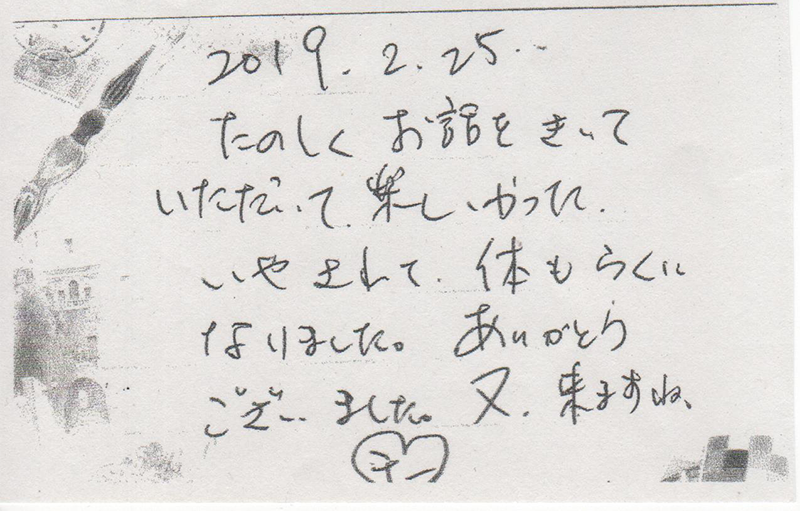 2019.2.25..
たのしくお話をきいて
いただいて.楽しいかった.
いやされて.体もらくに
なりました。ありがとう
ございました。又.来ますね、